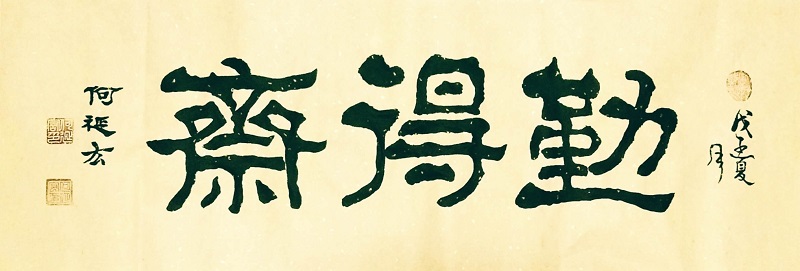 勤得齋
戊子夏
月
何延